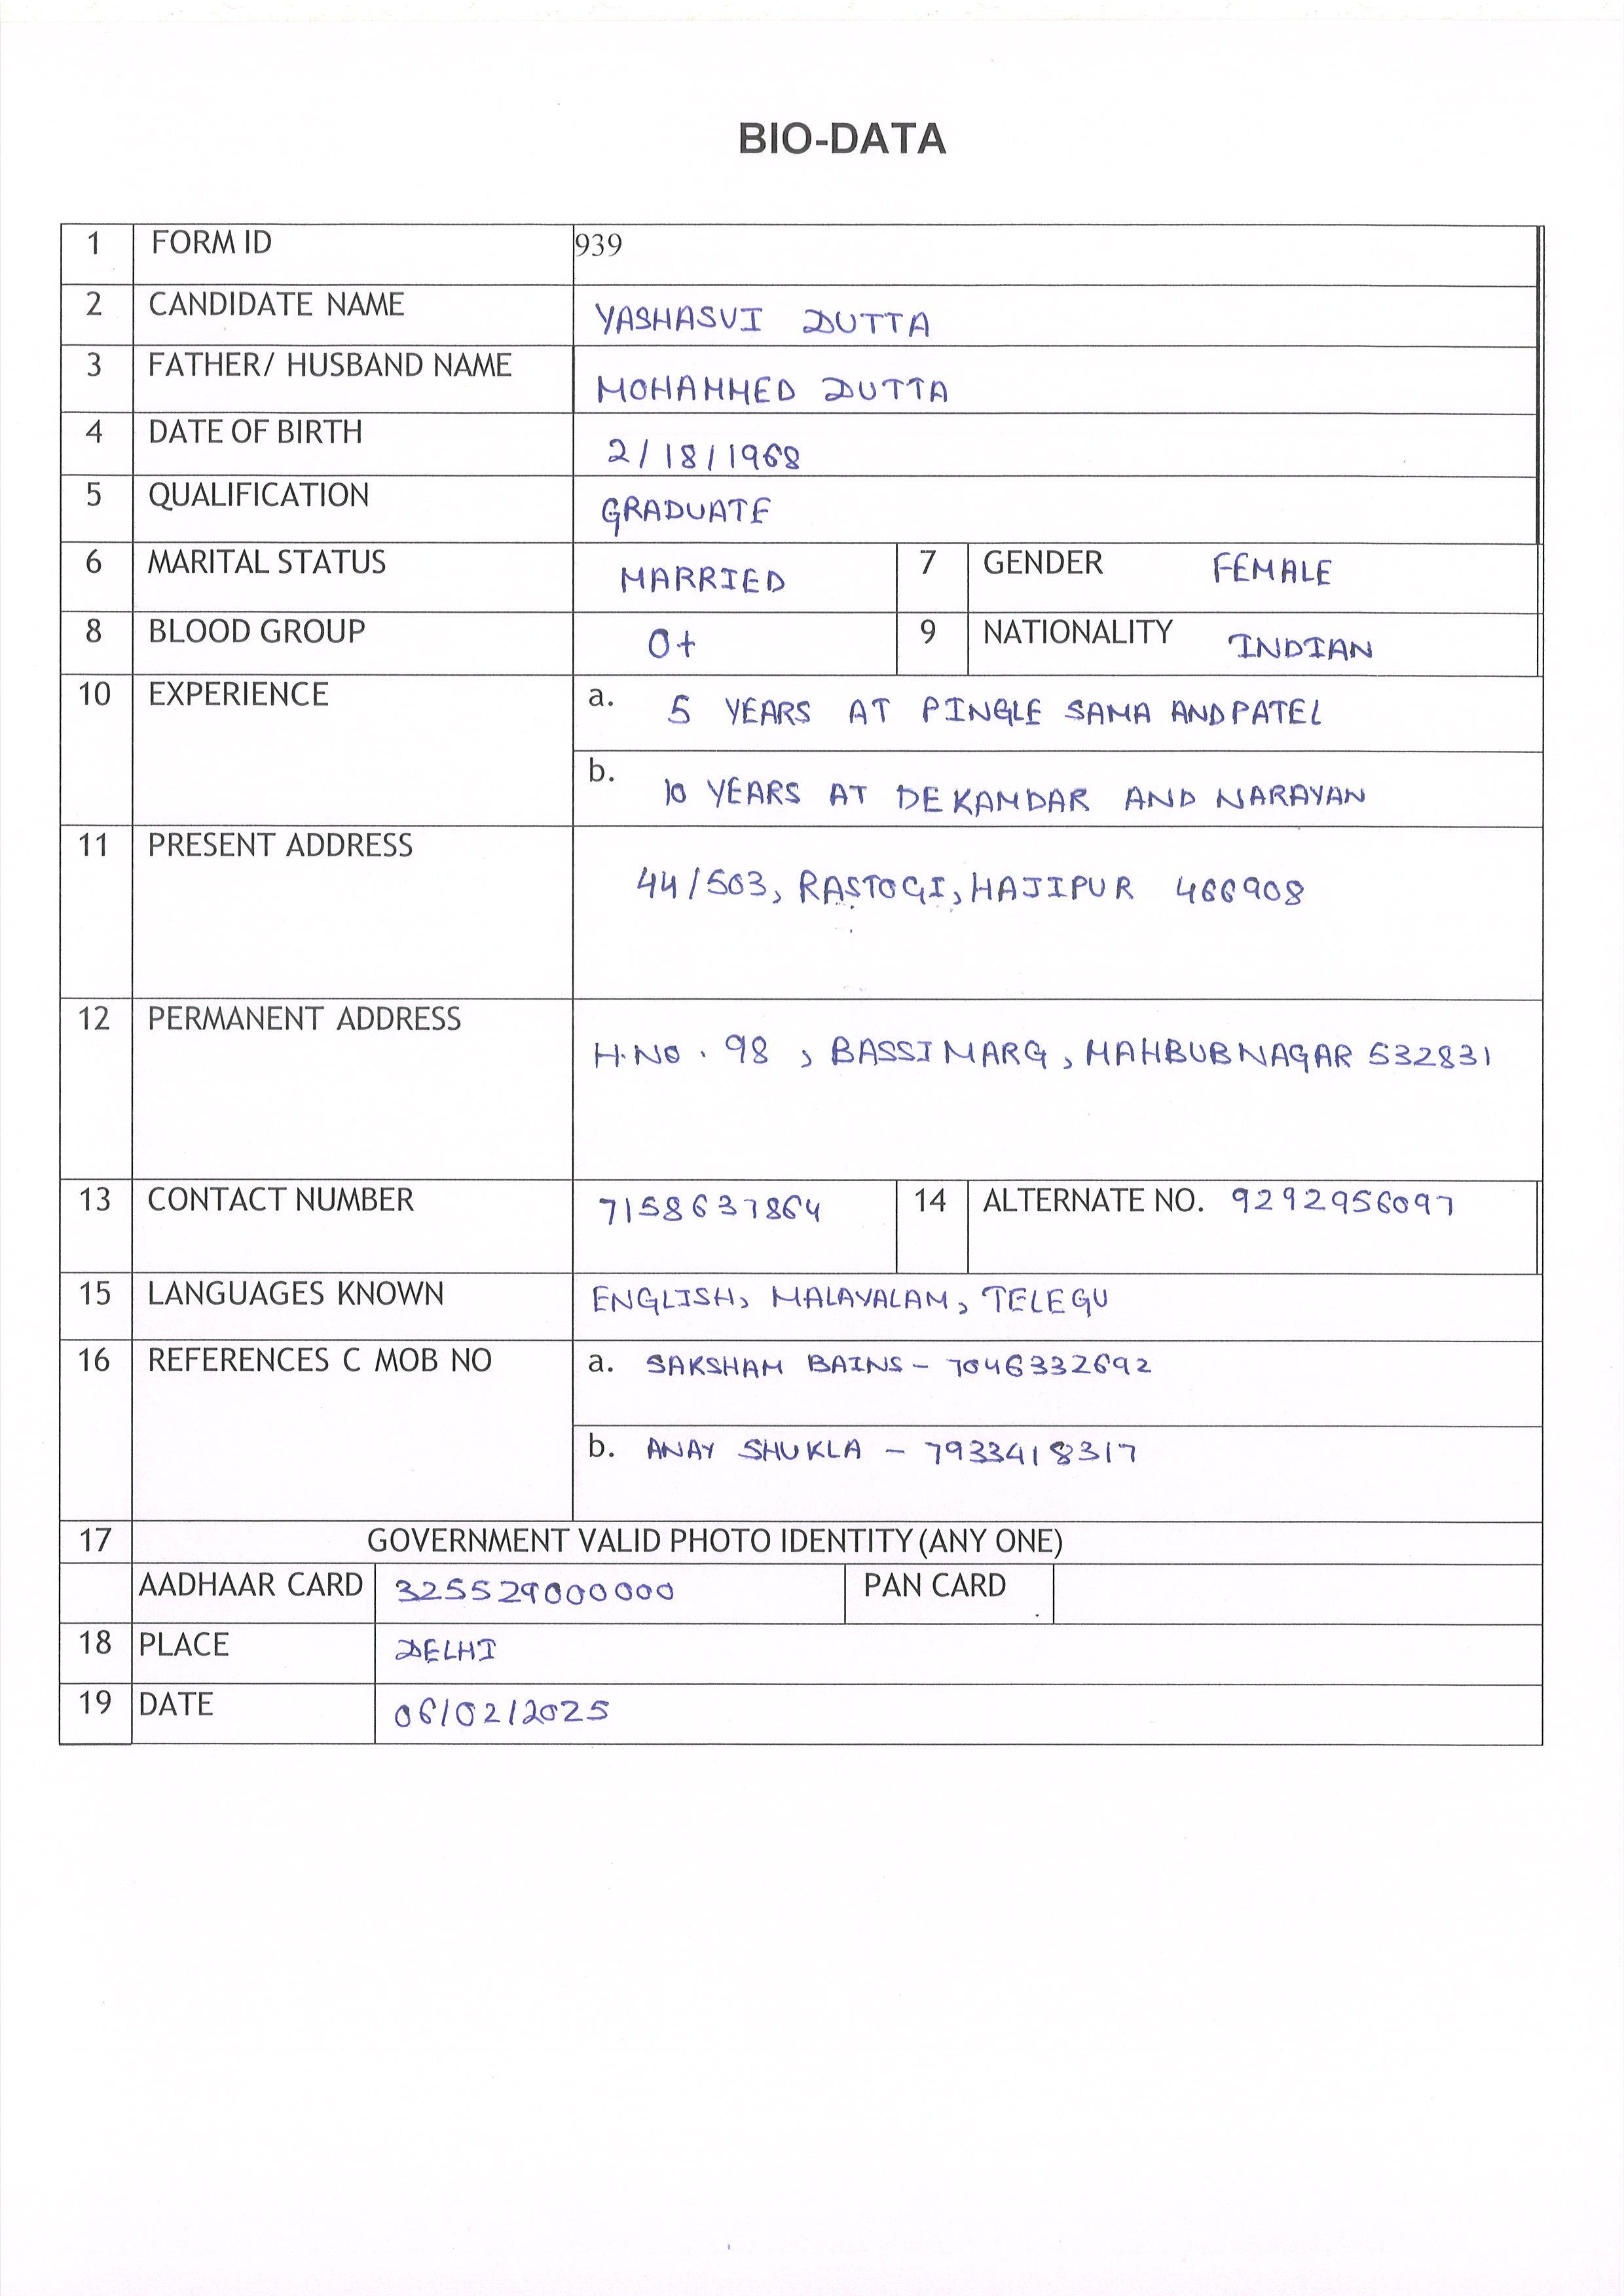 BIO-DATA
1 FORM ID 939
2 CANDIDATE NAME YASHASVI DUTTA
3 FATHER/ HUSBAND NAME MOHAMMED DUTTA
4 DATE OF BIRTH 2/18/1968
5 QUALIFICATION GRADUATE
6 MARITAL STATUS MARRIED 7 GENDER FEMALE
8 BLOOD GROUP O+ 9 NATIONALITY INDIAN
10 EXPERIENCE a. 5 YEARS AT PINGLE SAMA AND PATEL
b. 10 YEARS AT DE KAMDAR AND NARAYAN
11 PRESENT ADDRESS
44/503, RASTOGI, HAJIPUR 466908
12 PERMANENT ADDRESS
H.NO. 98, BASSI MARG, MAHBUBNAGAR 532831
13 CONTACT NUMBER 7158637864 14 ALTERNATE NO. 9292956097
15 LANGUAGES KNOWN ENGLISH, MALAYALAM, TELEGU
16 REFERENCES C MOB NO a. SAKSHAM BAINS - 7046332692
b. ANAY SHUKLA - 7933418317
17 GOVERNMENT VALID PHOTO IDENTITY (ANY ONE)
AADHAAR CARD 325529000000 PAN CARD
18 PLACE DELHI
19 DATE 06/02/2025